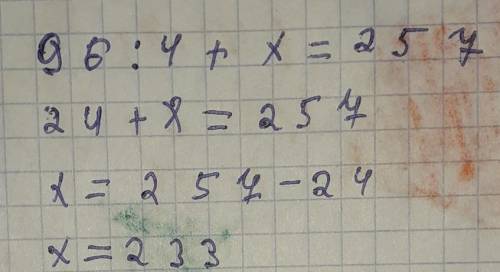 96:4+x=257
24+x=257
x=257-24
x=233